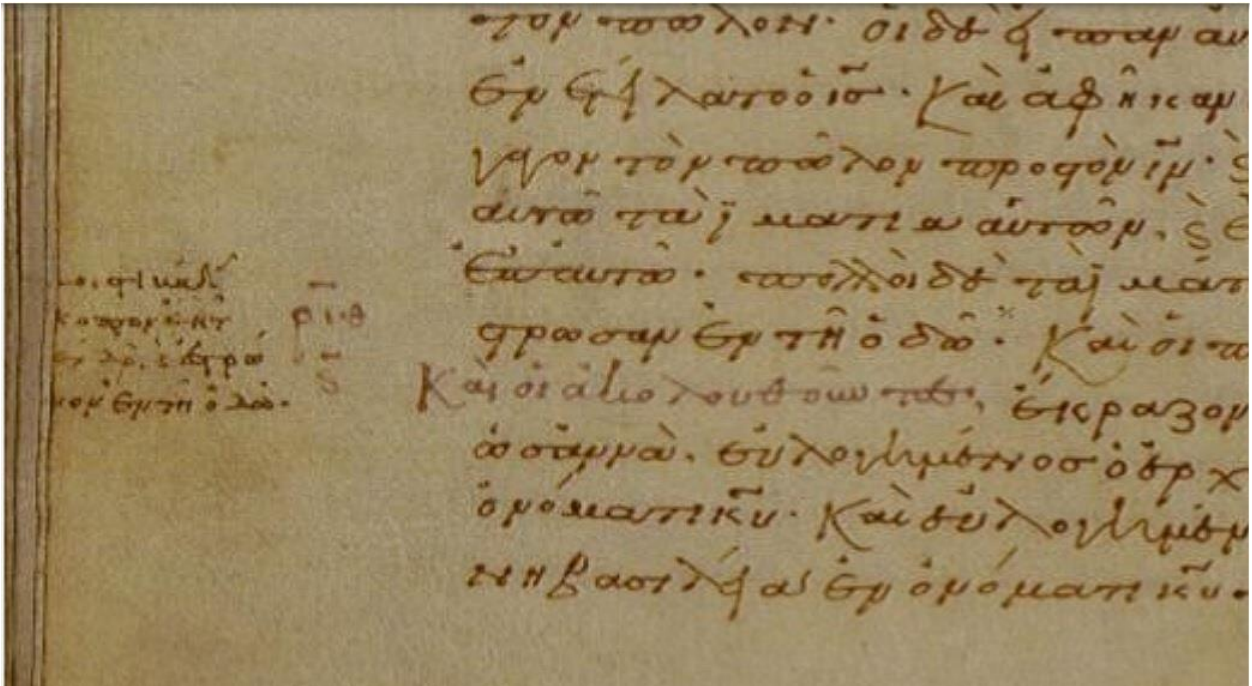 τὸν πῶλον· οἱ δὲ εἶπαν αυ
ἐνετείλατο ὁ ις̅· Καὶ ἀφῆκαν
γαγον τὸν πῶλον προστὸν ιν̅· ϗ
αυτῶ τὰ ϊμάτια αὐτῶν. ϗ ἐ
ἐπαυτῶ· πολλοὶ δὲ τὰ ϊμάτ
στρωσαν ἐν τῆ ὁδῶ· Καὶ οἱ π
Καὶ οἱ ἀκολουθοῦντες, ἔκραζον
ὡσαννὰ. εὐλογημένος ὁ ἐρχ
ὀνόματι κυ̅· Καὶ εὐλογημέν
νη βασιλεία ἐν ὀνόματι κυ̅.
κοπτον ἐκ τ
ἐστρώ
νον ἐν τῆ ὁδῶ.
ριθ
ς